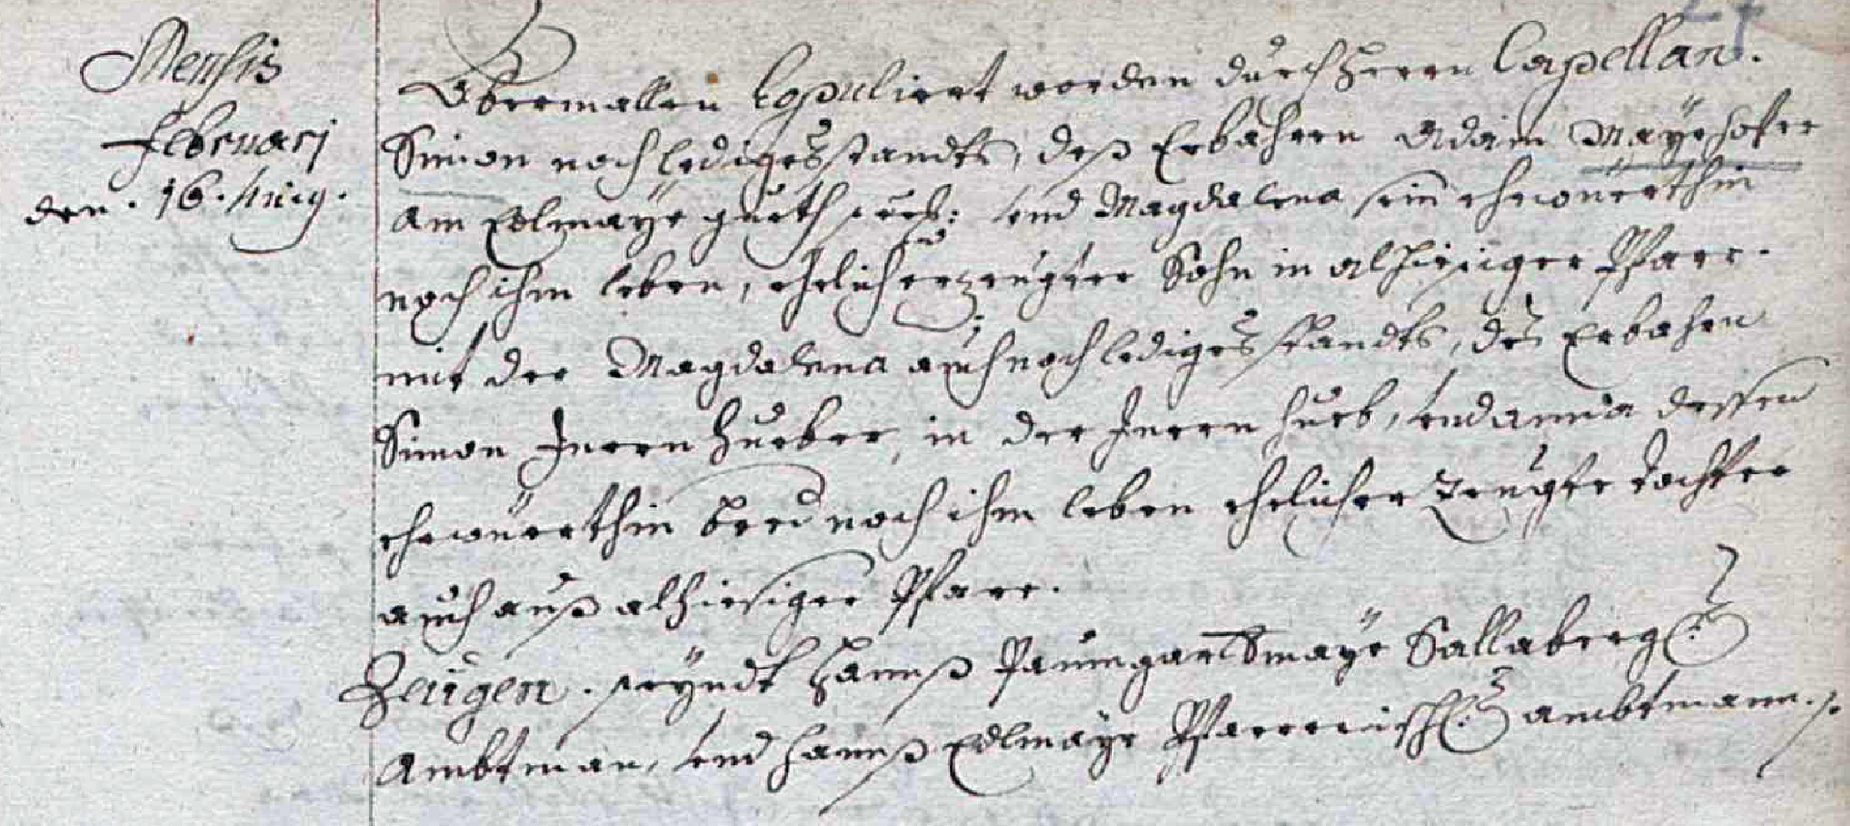 Mensis
Februarj
den. 16. huig.
Obermallen Copuliert worden durch Herrn Capellan.
Simon noch ledigesstandts, deß Erbahrn Adam Mayrhofer
am Edlmayr gueth und Magdalena sein ehewürthin
noch ihm leben, ehelich erzeugter Sohn in alhiesiger Pfarr.
mit der Magdalena auch noch ledigesstandts, des Erbahrn
Simon Inern Hueber, in der Inern Hueb, und anna dessen
ehewürthin beed noch ihm leben ehelich erzeugte tochter
auch auß alhiesiger Pfarr.
Zeügen. seyndt Hannß Paumgartmayr Sallaberg:
Ambtman, und Hannß Edlmayr Pfarrerisch: ambtmann.